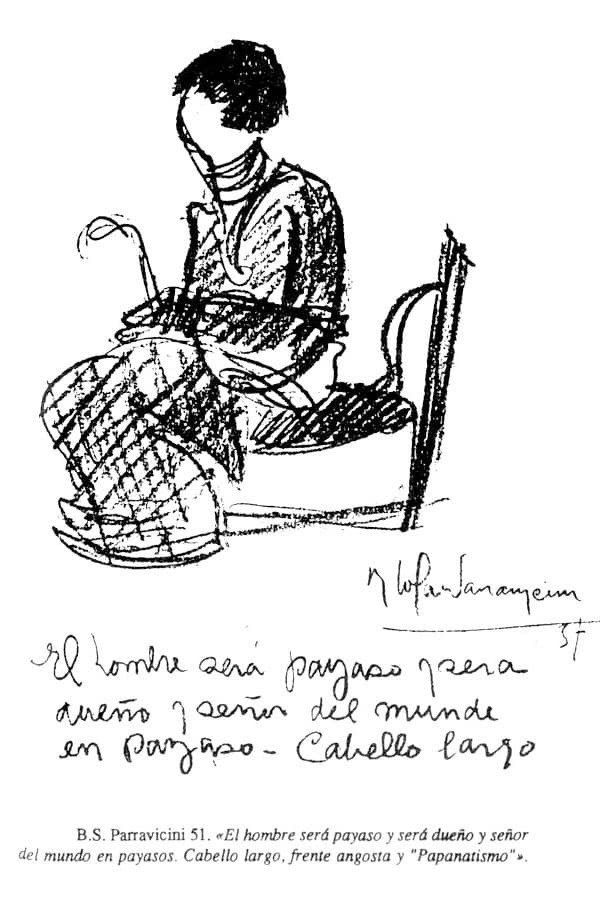 37
El hombre será payaso y sera
dueño y señor del munde
en payaso - Cabello largo
B.S. Parravicini 51. «El hombre será payaso y será dueño y señor
del mundo en payasos. Cabello largo, frente angosta y "Papanatismo"».